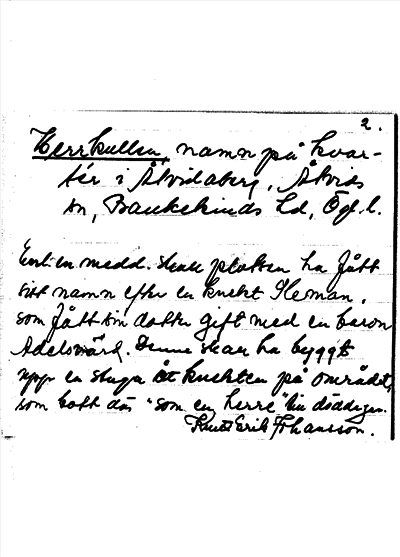 2.
Herrkullen, namn på kvar-
tér i Åtvidaberg, Åtvids
sn, Bankekinds hd, Ögl.
Enl. en medd. skall platsen ha fått
sitt namn efter en knekt Sleman,
som fått sin dotter gift med en baron
Adelswärd. Denne skall ha byggt
upp en stuga åt knekten på området,
som bott där "som en herre" till dödedagar.
Knut Erik Johansson.